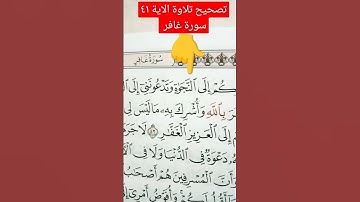 تصحيح تلاوة الاية ٤١
سورة غافر
سُورَةُ غَافِرٍ
كُمْ إِلَى ٱلنَّجَوٰةِ وَتَدْعُونَنِىٓ إِلَى
بِٱللَّهِ وَأُشْرِكَ بِهِۦ مَا لَيْسَ لِى
إِلَى ٱلْعَزِيزِ ٱلْغَفَّٰرِ ٤٢ لَا جَرَمَ
دَعْوَةٌ فِى ٱلدُّنْيَا وَلَا فِى
أَنَّ ٱلْمُسْرِفِينَ هُمْ أَصْحَٰبُ
أَقُولُ لَكُمْ وَأُفَوِّضُ أَمْرِىٓ